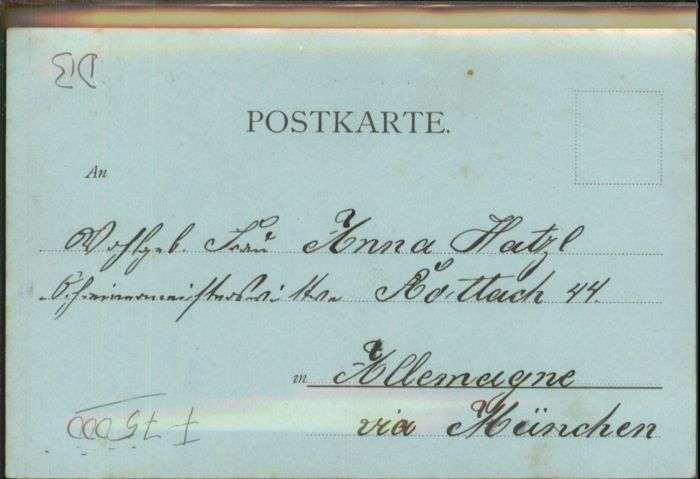 D13
POSTKARTE.
An
Wohlgeb. Frau Anna Hatzl
Schreinermeisterswittwe Rottach 44.
in Allemagne
via München